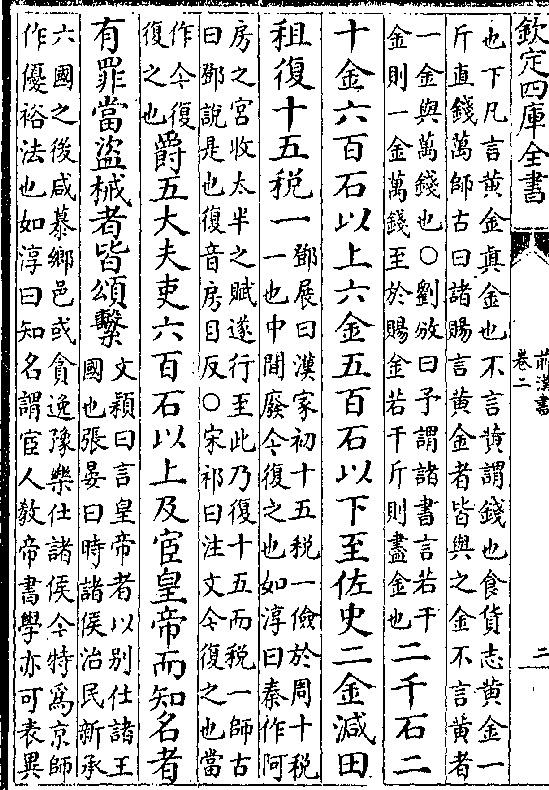 欽定四庫全書
前漢書
卷二
二
也下凡言黄金真金也不言黄謂錢也食貨志黄金一
斤直錢萬師古曰諸賜言黄金者皆與之金不言黄者
一金與萬錢也○劉攽曰予謂諸書言若干
金則一金萬錢至於賜金若干斤則盡金也
二千石二
十金六百石以上六金五百石以下至佐史二金減田
租復十五税一
鄧展曰漢家初十五税一儉於周十税
一也中間廢今復之也如淳曰秦作阿
房之宫收太半之賦遂行至此乃復十五而税一師古
曰鄧説是也復音房目反○宋祁曰注文今復之也當
作今復
復之也
爵五大夫吏六百石以上及宦皇帝而知名者
有罪當盜械者皆頌繫
文穎曰言皇帝者以别仕諸王
國也張晏曰時諸侯治民新承
六國之後咸慕鄉邑或貪逸豫樂仕諸侯今特爲京師
作優裕法也如淳曰知名謂宦人教帝書學亦可表異